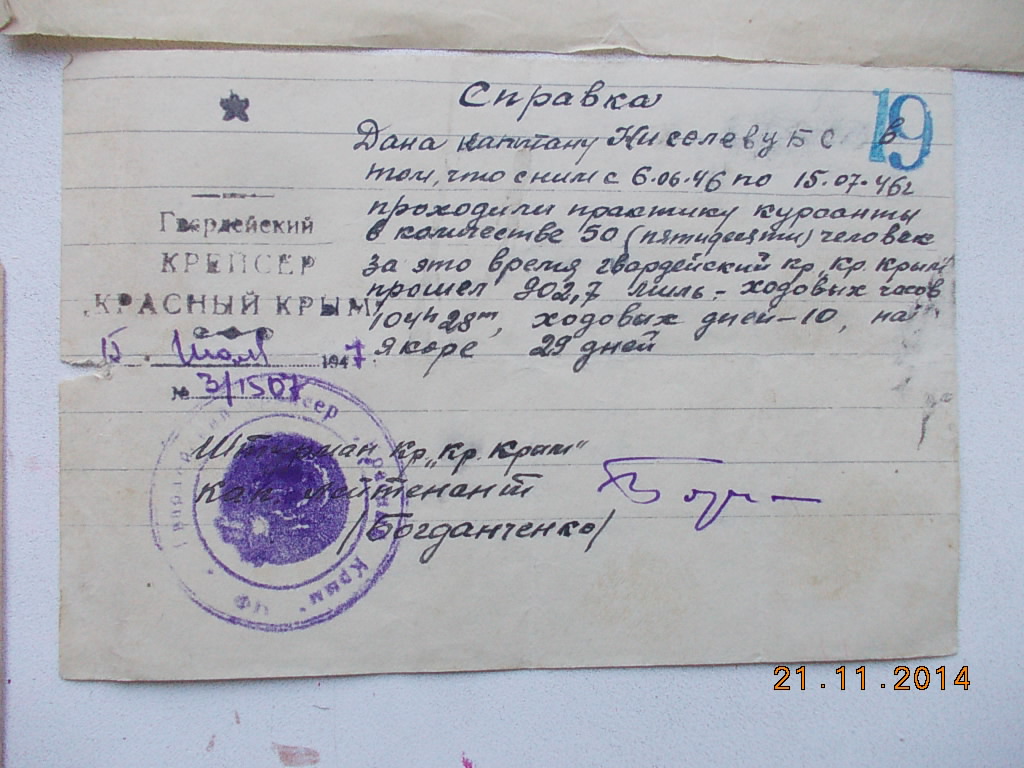 Справка
19
Дана капитану Киселеву Б С в
том, что с ним с 6.06.46 по 15.07.46г
проходили практику курсанты
в количестве 50 (пятидесяти) человек
за это время гвардейский кр. „Кр. Крым"
прошел 902,7 миль, ходовых часов
104ч 28m, ходовых дней - 10, на
якоре 29 дней
Гвардейский
КРЕЙСЕР
„КРАСНЫЙ КРЫМ"
15 . Июля 1947
№ 3/1507
Штурман кр „Кр. Крым"
кап. лейтенант
/Богданченко/
Гвардейский крейсер Крым" ЧФ
21.11.2014